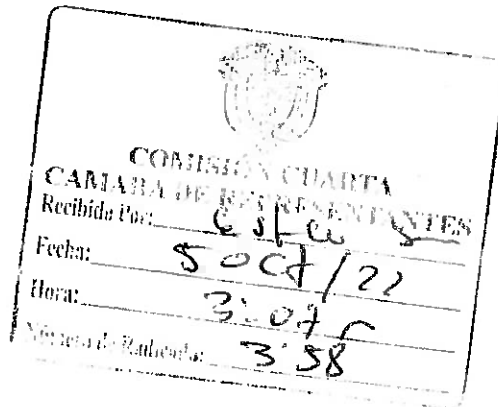 COMISIÓN CUARTA
CAMARA DE REPRESENTANTES
Recibido Por:
Fecha: 5 oct / 22
Hora: 3:07
Número de Radicado: 358